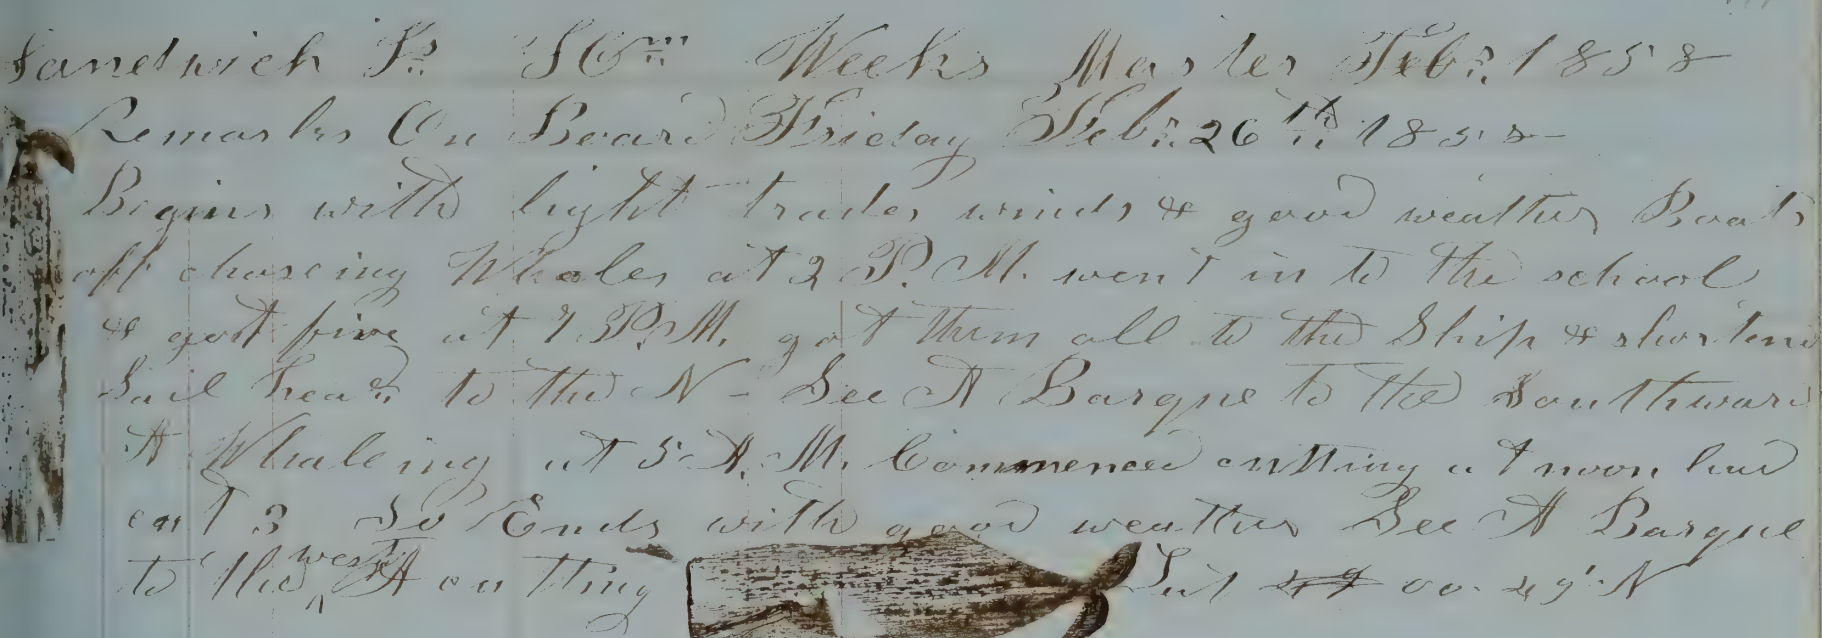 Sandwich Is. Wm Weeks Master Feb. 1858
Remarks On Board Friday Feb. 26th 1858
Begins with light trades winds & good weather Boats
off chaseing Whales at 2 P. M. went in to the school
& got five at 7 P. M. got them all to the Ship & shortend
Sail head to the N - See A Barque to the Southward
A Whaleing at 5 A. M. Commenced cutting at noon had
cut 3 So Ends with good weather See A Barque
to the west A cutting Lat 00. 49' N